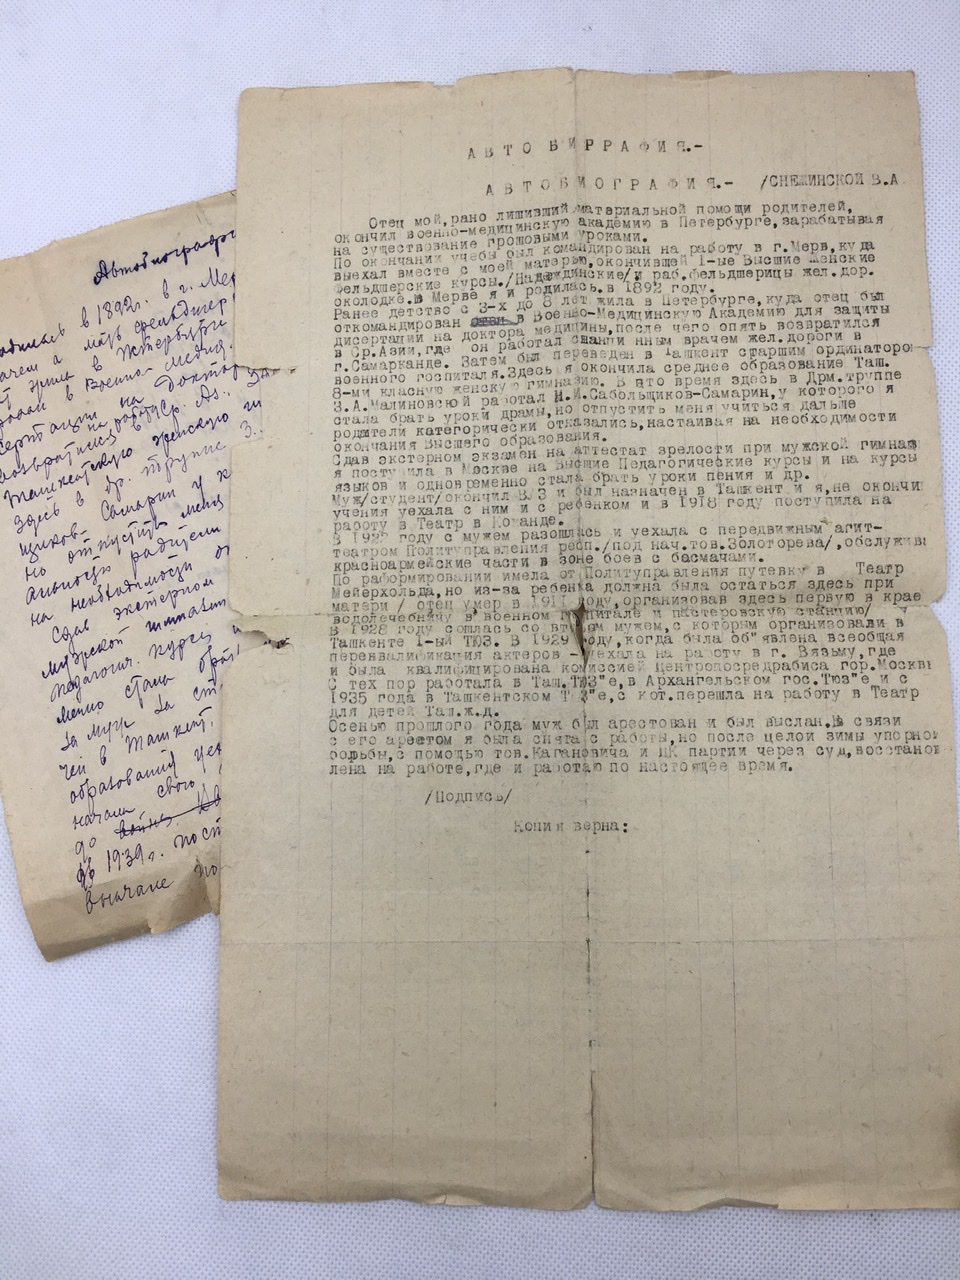 АВТО БИРРАФИЯ.-
АВТОБИОГРАФИЯ.- /СНЕЖИНСКОЙ В.А
Отец мой,рано лишивший материальной помощи родителей,
окончил военно-медицинскую академию в Петербурге,зарабатывая
на существование грошовыми уроками.
По окончании учебы был командирован на работу в г.Мерв,куда
выехал вместе с моей матерью,окончившей 1-ые Высшие Женские
Фельдшерские курсы./Надеждинские/и раб.фельдшерицы жел.дор.
околодке.В Мерве я и родилась.в 1892 году.
Ранее детство с 3-х до 8 лет жила в Петербурге,куда отец был
откомандирован в Военно-Медицинскую Академию для защиты
дисертации на доктора медицины,после чего опять возвратился
в Ср.Азию,где он работал врачем жел.дороги в
г.Самарканде. Затем был переведен в Ташкент старшим ординатором
военного госпиталя.Здесь я окончила среднее образование Таш.
8-ми класную женскую гимназию. В это время здесь в Дрм.труппе
З.А.Малиновской работал И.И.Сабольщиков-Самарин,у которого я
стала брать уроки драмы,но отпустить меня учиться дальше
родители категорически отказались,настаивая на необходимости
окончания Высшего образования.
Сдав экстерном экзамен на аттестат зрелости при мужской гимназ
я поступила в Москве на Высшие Педагогические курсы и на курсы
языков и одновременно стала брать уроки пения и др.
Муж/студент/окончил ВУЗ и был назначен в Ташкент и я,не окончи
учения уехала с ним и с ребенком и в 1918 году поступила на
работу в Театр в Коканде.
В 1922 году с мужем разошлась и уехала с передвижным агит-
театром Политуправления респ./под нач.тов.Золоторева/,обслужив
красноармейские части в зоне боев с басмачами.
По раформировании имела от Политуправления путевку в Театр
Мейерхольда,но из-за ребенка должна была остаться здесь при
матери / отец умер в 1911 году,организовав здесь первую в крае
водолечебницу в военном госпитале и пастеровскую станцию/
В 1928 году сошлась со вторым мужем,с которым организовали в
Ташкенте 1-ый ТЮЗ. В 1929 году,когда была об"явлена всеобщая
переквалификация актеров - уехала на работу в г. Вязьму,где
и была квалифицирована комиссией Центропосредрабиса гор.Москвы
С тех пор работала в Таш.ТЮЗ"е,в Архангельском гос.Тюз"е и с
1935 года в Ташкентском ТЮЗ"е,с кот.перешла на работу в Театр
для детей Таш.ж.д.
Осенью прошлого года муж был арестован и был выслан.В связи
с его арестом я была снята с работы,но после целой зимы упорной
борьбы,с помощью тов.Кагановича и ЦК партии через суд,восстанов
лена на работе,где и работаю по настоящее время.
/Подпись/
Копия верна:
Автобиографи
одилась в 1892г. в г. Мер
рачем а мать фельдшер
жила в Петербурге
в Военно-медиц.
сертации на докто
возвратились в Ср. Аз.
Ташкентскую женскую ги
Здесь в др. труппе З.
щиков-Самарин у к
но отпустить меня
родители
на необходимости о
Сдав экстерном
мужской гимназии
педагогич. курсы и
менно стала брат
замуж за ст
чен в Ташкент.
образованию уех
начала свою
до войны
В 1939г. пост
вначале по